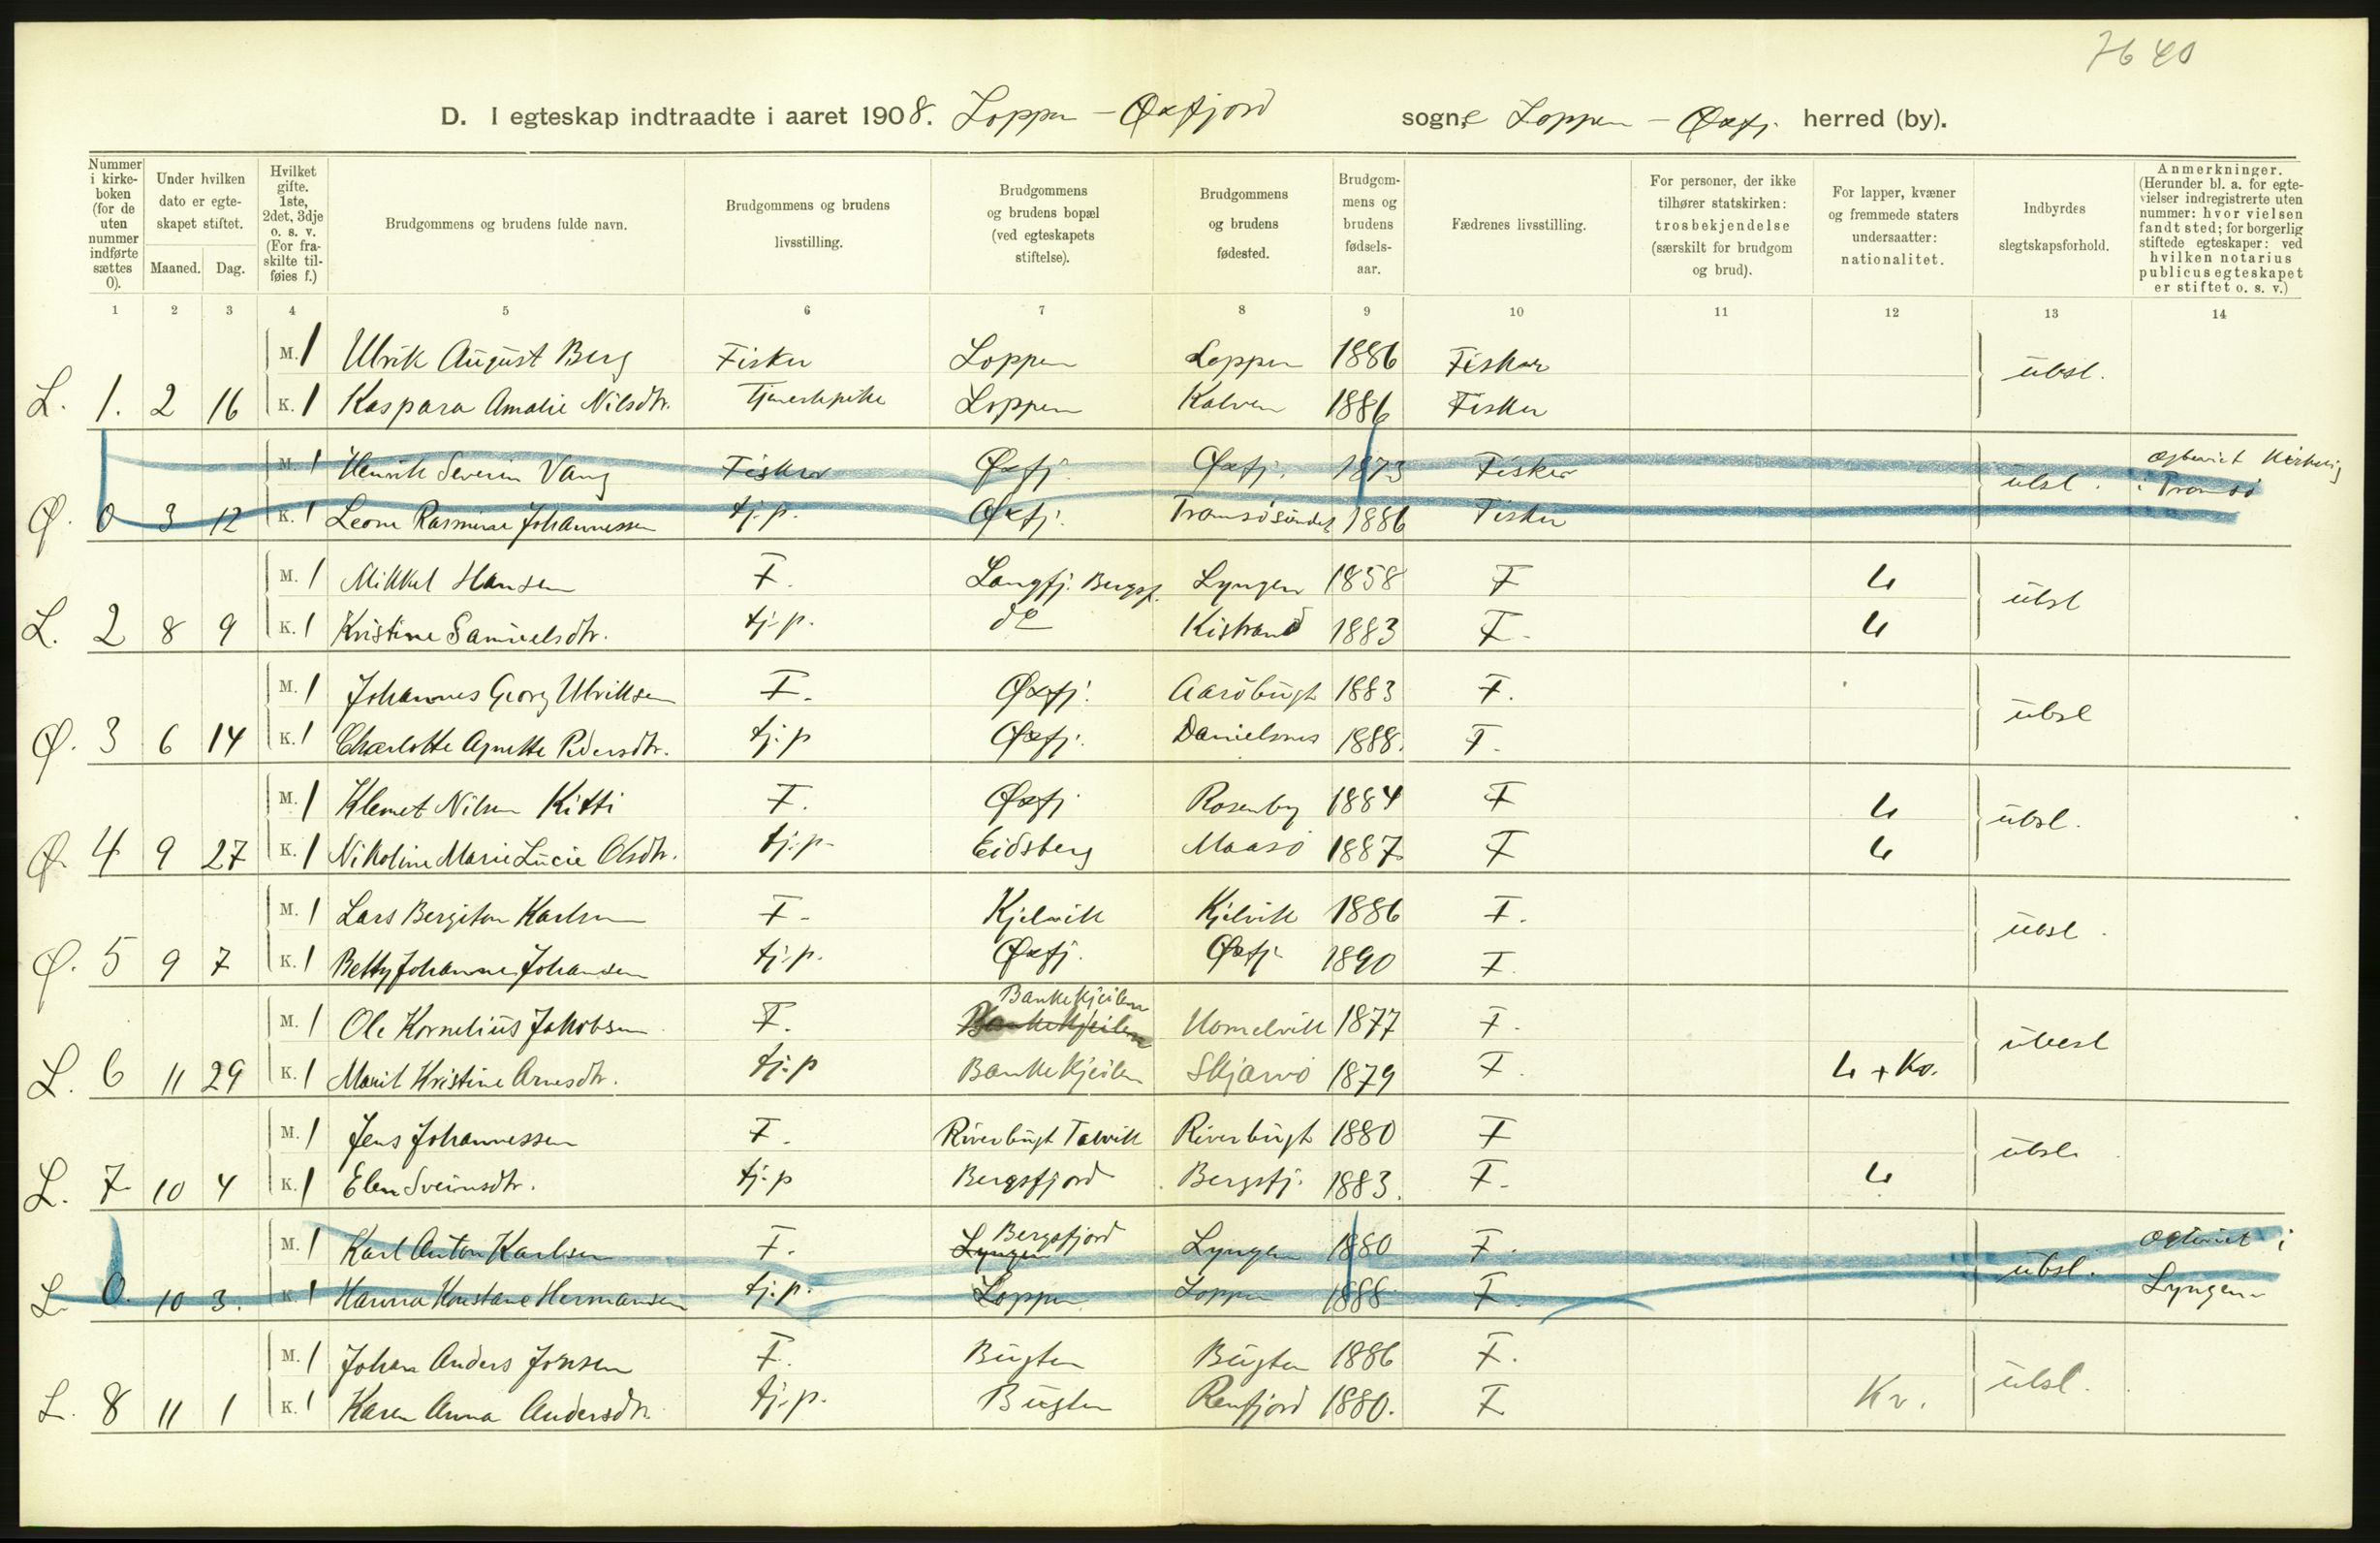 7640
D. I egteskap indtraadte i aaret 1908. Loppen - Øxfjord sogne Loppen - Øxfj. herred (by).
Nummer i kirkeboken (for de uten nummer indførte sættes 0). | Under hvilken dato er egteskapet stiftet. Maaned. Dag. | Hvilket gifte. 1ste, 2det, 3dje o. s. v. (For fraskilte tilføies f.) | Brudgommens og brudens fulde navn. | Brudgommens og brudens livsstilling. | Brudgommens og brudens bopæl (ved egteskapets stiftelse). | Brudgommens og brudens fødested. | Brudgommens og brudens fødselsaar. | Fædrenes livsstilling. | For personer, der ikke tilhører statskirken: trosbekjendelse (særskilt for brudgom og brud). | For lapper, kvæner og fremmede staters undersaatter: nationalitet. | Indbyrdes slegtskapsforhold. | Anmerkninger. (Herunder bl. a. for egtevielser indregistrerte uten nummer: hvor vielsen fandt sted; for borgerlig stiftede egteskaper: ved hvilken notarius publicus egteskapet er stiftet o. s. v.)
1 2 3 4 5 6 7 8 9 10 11 12 13 14
M. 1 Ulrik August Berg Fisker Loppen Loppen 1886 Fisker ubsl.
L. 1. 2 16 K. 1 Kaspara Amalie Nilsdtr. Tjenestepike Loppen Kalven 1886 Fisker
M. 1 Henrik Severin Vang Fisker Øxfj. Øxfj. 1873 Fisker ubsl. Egteviet Kirkelig i Tromsö
Ø. 0 3 12 K. 1 Leone Rasmine Johannessen tj. p. Øxfj. Tromsösundet 1886 Fisker
M. 1 Mikkel Hansen F. Langfj. Bergsf. Lyngen 1858 F L ubsl
L. 2 8 9 K. 1 Kristine Samuelsdtr. tj. p. do Kistrand 1883 F. L
M. 1 Johannes Georg Ulriksen F. Øxfj. Aaröbugt 1883 F. ubsl
Ø. 3 6 14 K. 1 Charlotte Agnette Pedersdtr. tj. p Øxfj. Danielsnes 1888. F.
M. 1 Klemet Nilsen Kitti F. Øxfj Rosenby 1884 F L ubsl.
Ø. 4 9 27 K. 1 Nikoline Marie Lucie Olsdtr. tj. p. Eidsberg Maasö 1887 F L
M. 1 Lars Bergiton Karlsen F. Kjelvik Kjelvik 1886 F. ubsl.
Ø. 5 9 7 K. 1 Betty Johanne Johansen tj. p. Øxfj. Øxfj. 1890 F.
Bankekjeilen
M. 1 Ole Kornelius Jakobsen F. Bankekjeilen Komelvik 1877 F. ubesl
L. 6 11 29 K. 1 Marit Kristine Arnesdtr. tj. p Bankekjeilen Skjærvö 1879 F. L + Kv.
M. 1 Jens Johannessen F. Riverbugt Talvik Riverbugt 1880 F ubsl.
L. 7 10 4 K. 1 Elen Sveinsdtr. tj. p Bergsfjord Bergsfj. 1883. F. L
Bergsfjord
M. 1 Karl Anton Karlsen F. Lyngen Lyngen 1880 F. ubsl. Egteviet i Lyngen
L. 0. 10 3. K. 1 Hanna Konstane Hermansen tj. p. Loppen Loppen 1888 F.
M. 1 Johan Anders Jonsen F. Bugten Bugten 1886 F. ubsl.
L. 8 11 1 K. 1 Karen Anna Andersdtr. tj. p. Bugten Renfjord 1880. F Kv.